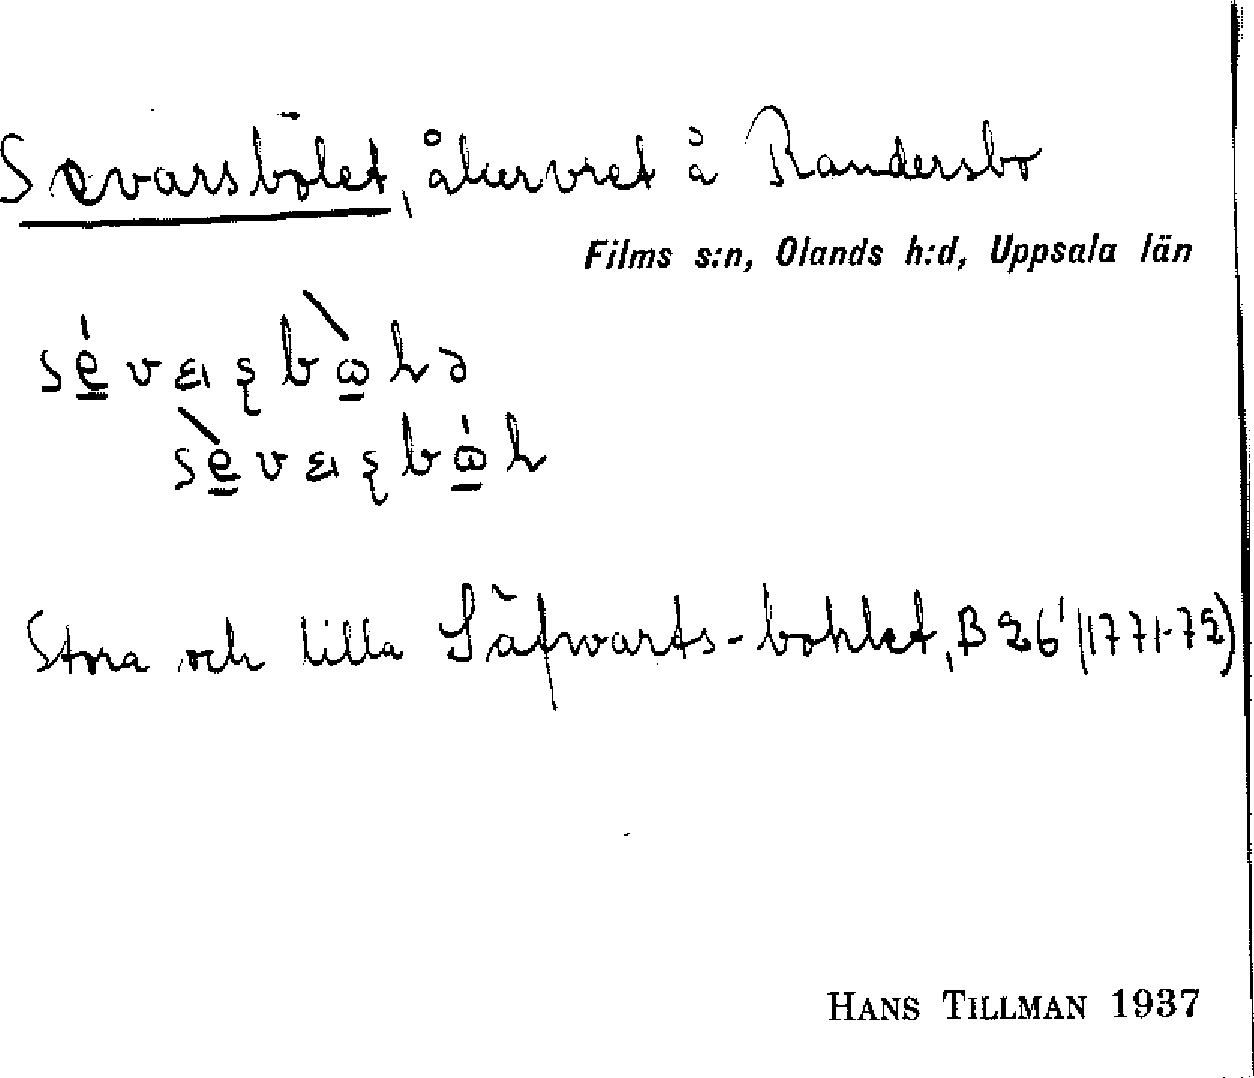 Sevarsbölet, åkervret å Randersbo
Films s:n, Olands h:d, Uppsala län
Stora och lilla Säfwarts-bohlet, B 26' (1771-72)
HANS TILLMAN 1937